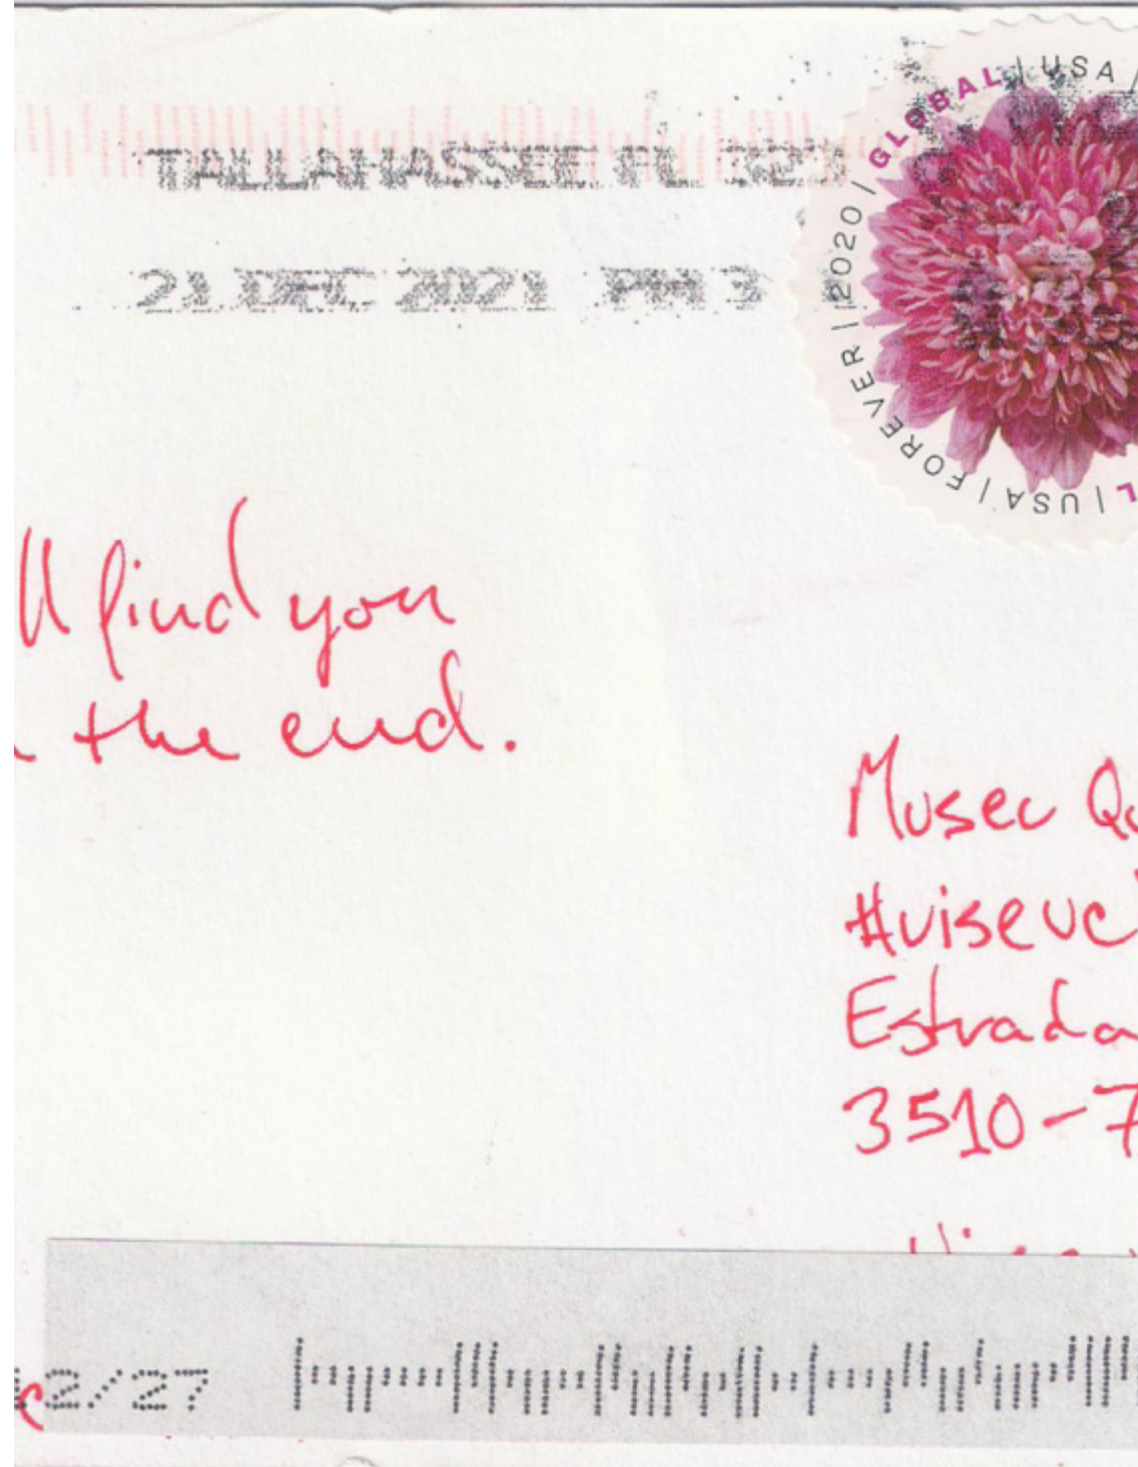 TALLAHASSEE FL 323
21 DEC 2021 PM 3
GLOBAL | USA |
L | USA | FOREVER | 2020 |
ll find you
the end.
Museu Qu
#viseu
Estrada
3510-7
2/27